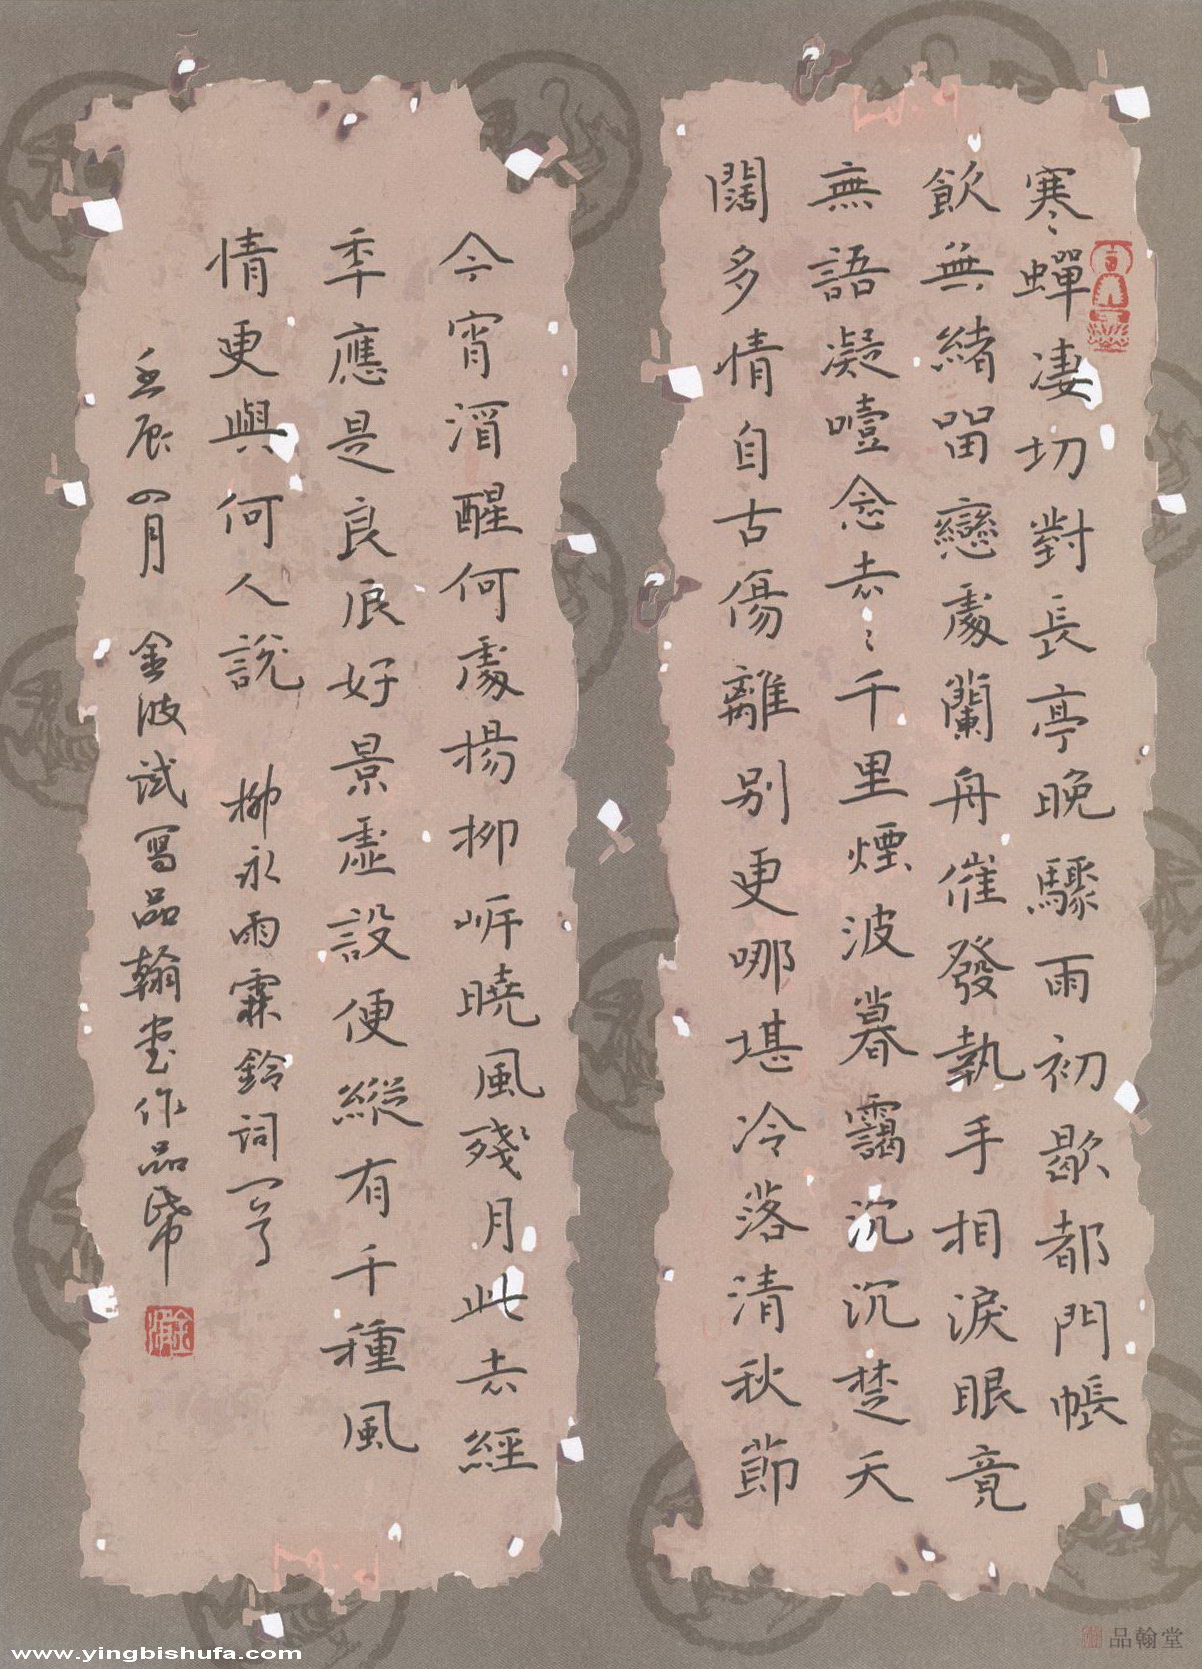 寒蟬淒切對長亭晚驟雨初歇都門帳
飲無緒留戀處蘭舟催發執手相淚眼竟
無語凝噎念去〻千里煙波暮靄沉沉楚天
闊多情自古傷離別更哪堪冷落清秋節
今宵酒醒何處楊柳岸曉風殘月此去經
年應是良辰好景虛設便縱有千種風
情更與何人說 柳永雨霖鈴詞一首
壬辰四月 金波試寫品翰堂作品紙
品翰堂
www.yingbishufa.com